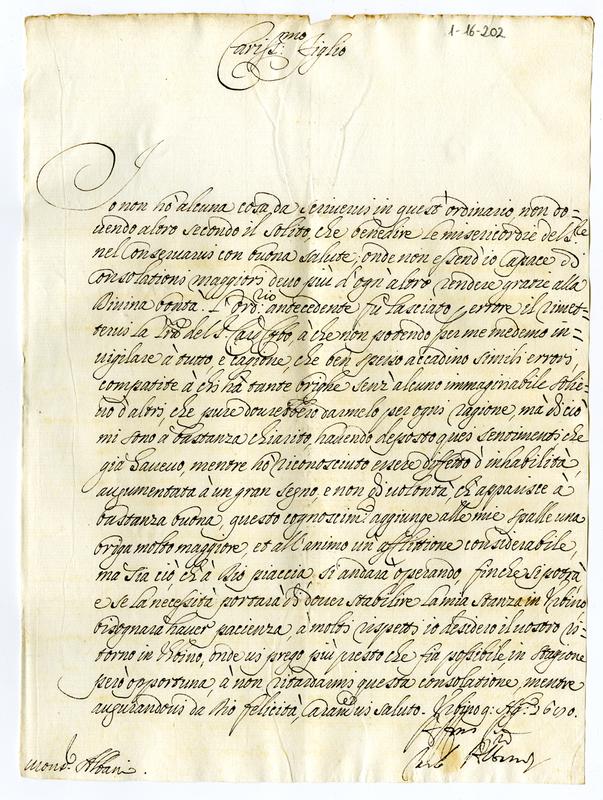 1-16-202
Cariss.mo figlio
Io non hò alcuna cosa da scrivervi in quest'ordinario, non do=
vendo altro secondo il solito, che benedire le misericordie del S.re
nel conservarvi con buona salute; onde non essend'io capace di
consolationi maggiori devo più d'ogn'altro rendere grazie alla
Divina bontà. L'ord.rio antecedente fù lasciato p errore il rimet=
tervi la del S. à che non potendo per me medemo in=
vigilare à tutto, è cagione, che ben spesso accadino simili errori
compatite à chi hà tante brighe senz'alcuno immaginabile solie=
vo d'altri, che pure dovrebbero darmelo per ogni ragione, mà di ciò
mi sono à bastanza chiarito, havendo deposto quei sentimenti che
già havevo, mentre hò riconosciuto essere difetto d'inhabilità,
augumentata à un gran segno, e non di volontà, ch'apparisce à
bastanza buona, questo cognoscim.to aggiunge alle mie spalle una
briga molto maggiore, et all'animo un'afflittione considerabile,
ma sia ciò ch'à Dio piaccia, si andarà operando, finche si potrà
e se la necessità portarà di dover stabilire la mia stanza in Urbino
bisognarà haver pacienza, à molti rispetti io desidero il vostro ri=
torno in Urbino, onde vi prego più presto che sia possibile, in stagione
però opportuna à non ritardarmi questa consolatione, mentre
augurandovi da Dio felicità, caram.te vi saluto. Urbino 9. Ag.o 1690.
Carlo Albani
Mons.r Albani.